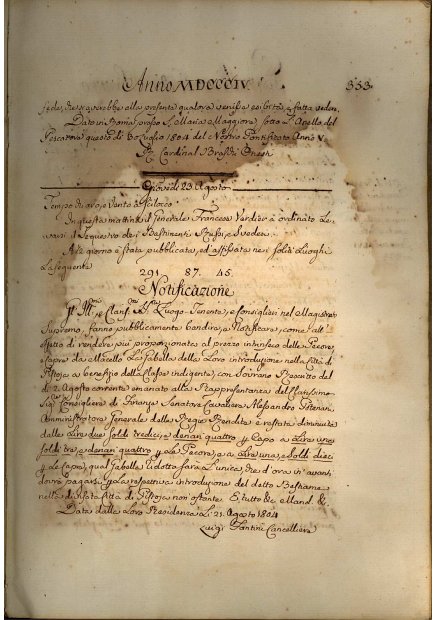 Anno MDCCCIV. 353
fede, che si darebbe alla presente qualora venisse esibita, e fatta vedere.
Dato in Roma presso S. Maria Maggiore sotto l'Anello del
Pescatore questo dì 30 Luglio 1804 del Nostro Pontificato Anno V.
Cardinal Braschi Onesti
Giovedì 23 Agosto
Tempo Vento Scilocco
In questa mattina il Generale Francese Verdier à ordinato Le
varsi il Sequestro dei Bastimenti Russi, e Svedesi.
giorno è stata pubblicata, ed affissata nei soliti Luoghi
La seguente
291 87. 45.
Notificazione
Luogo Tenente, e Consiglieri nel Magistrato
Supremo, fanno pubblicamente bandire, e Notificare, come all'
effetto di rendere più proporzionata al prezzo intrinseco delle Pecore
e Capre da Macello La Gabella della Loro introduzione nella Città di
Pistoja a benefizio della Classe indigente, con Sovrano Rescritto del
dì 2. Agosto corrente emanato alla Rappresentanza dell'Clarissimo
Sig. Consigliere di Firenze Senatore Cavaliere Alessandro
Amministratore Generale delle Regie Rendite è restata diminuita
dalle Lire due soldi tredici, e denari quattro Capo a Lire una
soldi tre, e denari quattro Le Pecore, e a Lire una, e soldi dieci
Le Capre, qual Gabella ridotta sarà l'unica, che d'ora in avanti
dovrà pagarsi La respettiva introduzione del detto Bestiame
nella Città di Pistoja non ostante E tutto &c. Mand. &c.
Data dalla Loro Residenza Li 21. Agosto 1804
Luigi Fantini Cancelliere